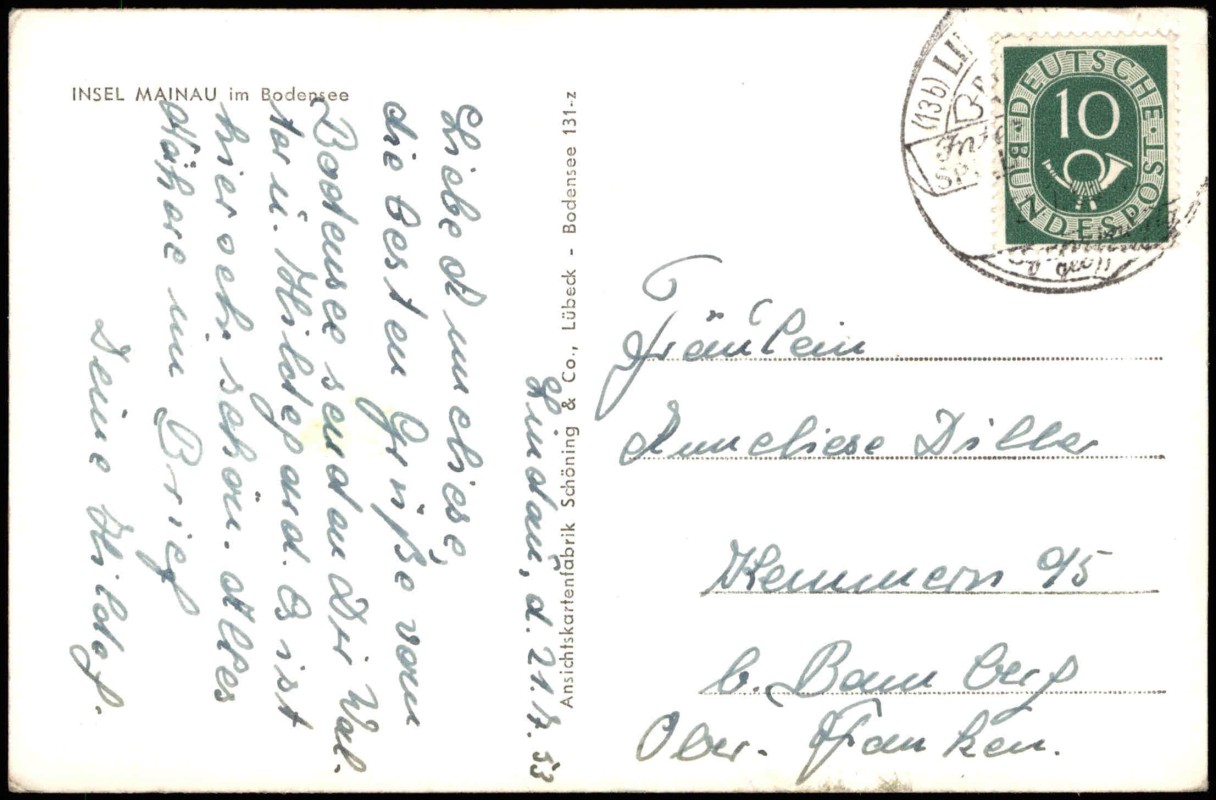 INSEL MAINAU im Bodensee
Lindau, d. 21.7.53
Liebe Anneliese,
die besten Grüße vom
Bodensee senden Dir Wal-
ter u. Hildegard. Es ist
hier sehr schön. Alles
Nähere im Brief
Deine Hildeg.
Ansichtskartenfabrik Schöning & Co., Lübeck - Bodensee 131-z
(13b) LIN
DEUTSCHE
10
BUNDESPOST
Fräulein
Anneliese Diller
Kemmern 95
b. Bamberg
Ober-Franken.